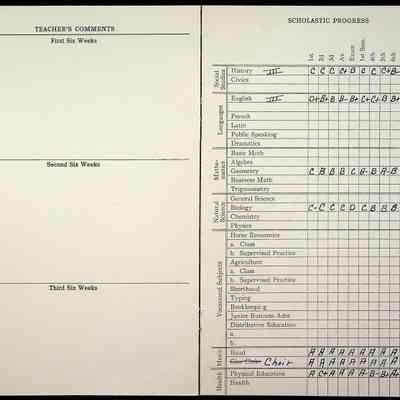 TEACHER'S COMMENTS
First Six Weeks
Second Six Weeks
Third Six Weeks
SCHOLASTIC PROGRESS
1st 2d 3d Av. Exam 1st Sem. 4th 5th 6th
Social Studies
History III C C C C+ B C C C+ B
Civics
Languages
English III D+ B+ B B- B+ C+ C+ B B+
French
Latin
Public Speaking
Dramatics
Mathematics
Basic Math
Algebra
Geometry C B B B C B- B A- B
Business Math
Trigonometry
Natural Science
General Science
Biology C- C C C D C B B B
Chemistry
Physics
Vocational Subjects
Home Economics
a. Class
b. Supervised Practice
Agriculture
a. Class
b. Supervised Practice
Shorthand
Typing
Bookkeeping
Junior Business Adm.
Distributive Education
a.
b.
Music
Band A A A A A A A A A
Choir A A A A A A A A A
Health
Physical Education A C+ A A A A- B- B+ A
Health